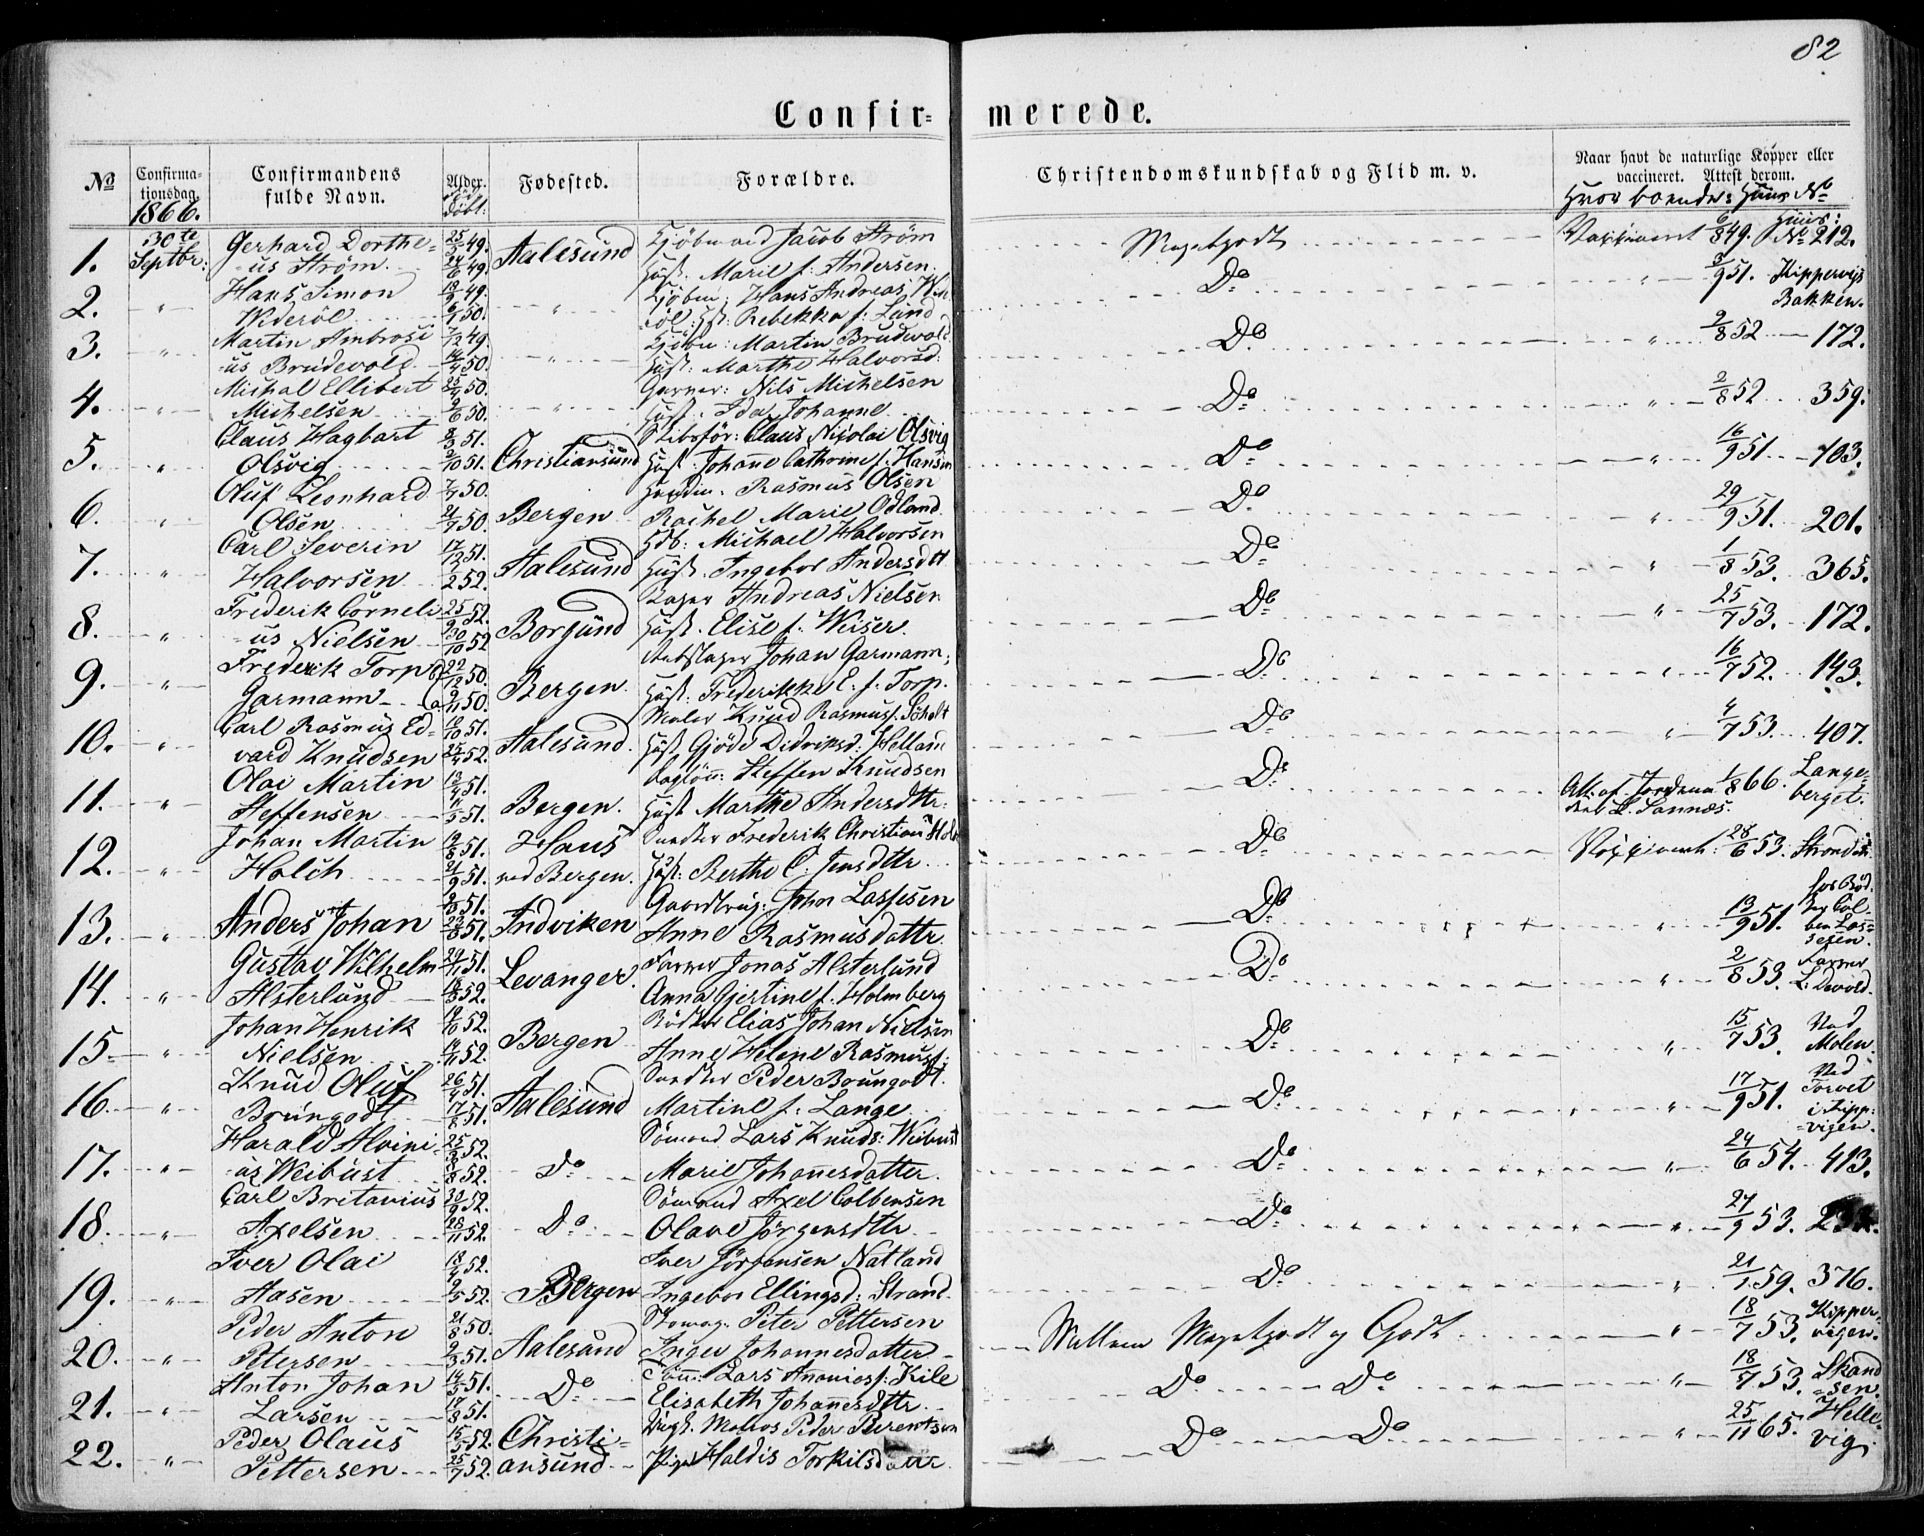 82
Confir= merede.
No
Confirma-
tionsdag.
1866.
Confirmandens
fulde Navn.
Alder.
døbt:
Fødested.
Forældre.
Christendomskundskab og Flid m. v.
Naar havt de naturlige Kopper eller
vaccineret. Attest derom.
Hvor boende: Huus No
1. 30te Septbr: Gerhard Dorthe-
us Strøm 25/3 49. 24/6 49. Aalesund Kjøbmd Jacob Strøm
Hust. Marie f. Andersen. Megetgodt Vaxineret 6/8 49. Huus: No 212.
2. " Hans Simon
Wideröl 19/9 49. 6/1 50. " Kjøbm: Hans Andreas Wide
röl. Hst: Rebekka f. Lund Do " 3/9 51. Kippervigs
Bakken.
3. " Martin Ambrosi
us Brudevold 7/12 49. 14/4 50. " Kjøbm: Martin Brudevold
Hust: Marthe Halvorsd: Do " 2/8 52 172.
4. " Michal Ellibert
Michelsen 25/4 50. 9/6 50. " Garver: Nils Michelsen
Hust. Ida Johanne Do " 2/8 52 359.
5. " Claus Hagbart
Olsvig 8/3 51. 2/10 51. Christiansund Skibsför: Claus Nikolai Olsvig
Hust. Johanne Cathrine f. Hansen Do " 16/9 51. 103.
6. " Oluf Leonhard
Olsen 7/7 50. 21/7 50. Bergen Rasmus Olsen
Rachel Marie Odland. Do " 29/9 51. 201.
7. " Carl Severin
Halvorsen 17/12 51. 252. Aalesund Hdb: Michael Halvorsen
Hust. Ingebor Andersdtt Do " 1/8 53. 365.
8. " Frederik Corneli
us Nielsen 25/9 52. 30/10 52 Borgund Bager Andreas Nielsen
Hust. Elise f. Weiser. Do " 25/7 53. 172.
9. " Frederik Torp
Garmann 22/12 50. 9/11 50. Bergen. Johan Garmann;
Hust: Frederikke E. f. Torp. Do " 16/7 52. 143.
10. " Carl Rasmus Ed-
vard Knudsen 10/10 51. 25/4 52. Aalesund. Maler Knud Rasmuss. Scholt
Hust Gjöde Didriksd: Helland Do " 4/7 53. 407.
11. " Olai Martin
Steffensen 13/4 51. 11/5 51. Bergen. Daglönn: Steffen Knudsen
Hust Marthe Andersdttr: Do Att. af Jordemo
der L. Sannæs. 1/8 66. Lange-
berget.
12. " Johan Martin
Holch 19/8 51. 21/9 51. Haus
ved Bergen. Snedker Frederik Christian Holch
Hust: Berthe C. Jensdttr Do Vaxineret: 28/6 53.
13. " Anders Johan 2/8 51. 23/8 51. Indviken Gaardbrug: John Lassesen
Anne Rasmusdattr Do " 13/9 51.
14. " Gustav Wilhelm
Alsterlund 29/11 51. 18/3 52. Levanger. Farver Jonas Alsterlund
Anna Gjertine f. Holmberg Do " 2/8 53. Farver
L. Devold.
15. " Johan Henrik
Nielsen 19/10 52. 14/11 52. Bergen Bödker Elias Johan Nielsen
Anne Helene Rasmusf. Do " 15/7 53. Ved
Molen.
16. " Knud Oluf
Brungodt 26/4 51. 17/8 51. Aalesund Snedker Peder Brungodt.
Martine f. Lange Do " 17/9 51. Ved
Torvet
i Kipp-
vigen.
17. " Harald Alvini
us Weibust 25/3 52. 8/8 52. Do Sömand Lars Knuds: Weibust
Marie Johannesdatter. Do " 24/6 54. 413.
18. " Carl Britanius
Axelsen 30/9 52. 28/11 52. Do Sömand Axel Colbensen
Olave Jörgensdttr Do " 27/9 53.
19. " Iver Olai
Hasen 18/4 52. 9/5 52. Bergen Iver Jörgensen Natland
Ingebor Ellingsd: Strand. Do " 21/1 59. 376.
20. " Peder Anton
Petersen 21/8 50. 2/3 51. Aalesund Skomag. Peter Pettersen
Inger Johannesdatter Mellem Megetgodt og Godt " 18/7 53. Kipper-
vigen.
21. " Anton Johan
Larsen 14/5 51. 17/8 51. Do Lars Ananiasf. Kile
Elisabeth Johannesdttr. Do Do " 18/7 53. Skand
sen.
22. " Peder Olaus
Pettersen 15/5 52. 25/7 52. Christi-
ansund Matros Peder Perentsen
Pige Haldis Torkilsdattr. Do Do " 25/11 65. Helle-
vig